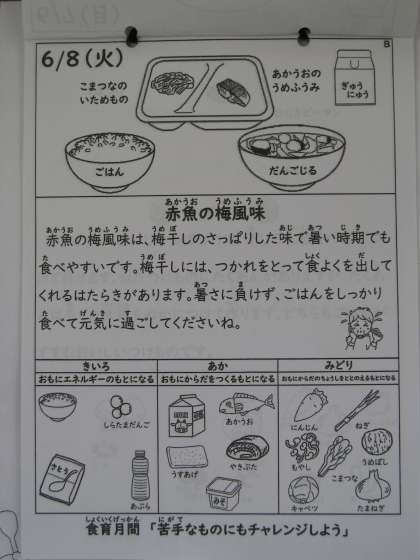 6/8(火)
B
こまつなの
いためもの
あかうおの
うめふうみ
ぎゅう
にゅう
ごはん
だんごじる
あかうお うめふうみ
赤魚の梅風味
あかうお うめふうみ うめぼ あじ あつ じき
赤魚の梅風味は、梅干しのさっぱりした味で暑い時期でも
た うめぼ しょく だ
食べやすいです。梅干しには、つかれをとって食よくを出して
あつ ま
くれるはたらきがあります。暑さに負けず、ごはんをしっかり
た げんき す
食べて元気に過ごしてくださいね。
きいろ あか みどり
おもにエネルギーのもとになる おもにからだをつくるもとになる おもにからだのちょうしをととのえるもとになる
しらたまだんご
さとう
あぶら
あかうお
うすあげ
やきぶた
みそ
にんじん
ねぎ
もやし
うめぼし
こまつな
キャベツ
たまねぎ
しょくいくげっかん にがて
食育月間 「苦手なものにもチャレンジしよう」